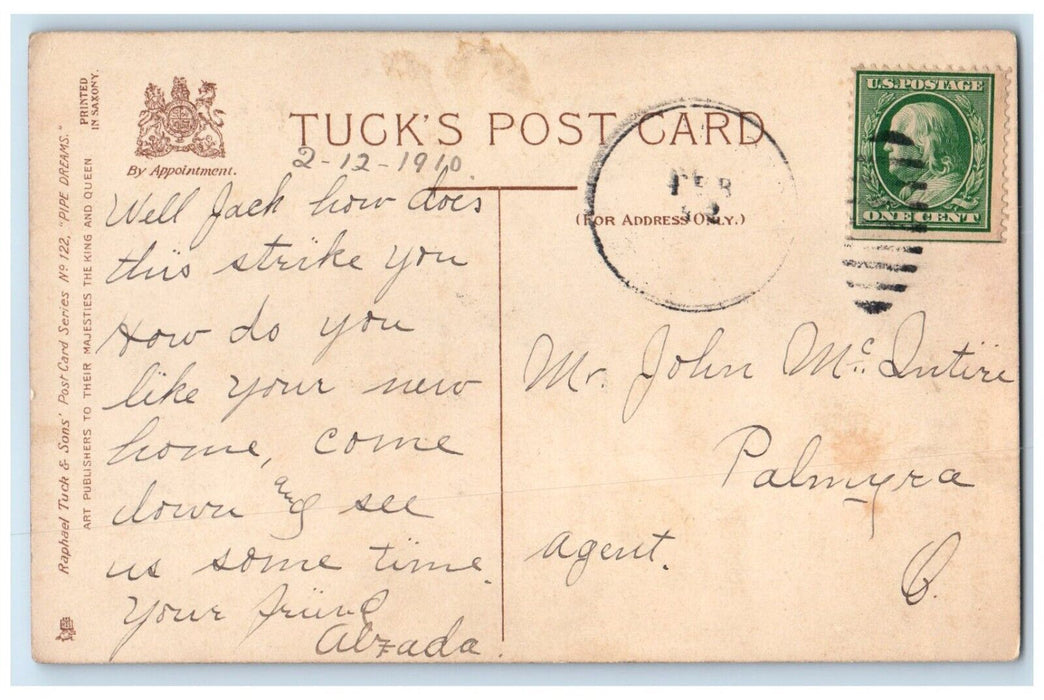 PRINTED
IN SAXONY.
By Appointment.
TUCK'S POST CARD
(FOR ADDRESS ONLY.)
U.S. POSTAGE
ONE CENT
FEB
12
Raphael Tuck & Sons' Post Card Series Nº 122, "PIPE DREAMS."
ART PUBLISHERS TO THEIR MAJESTIES THE KING AND QUEEN
2-12-1910
Well Jack how does
this strike you
How do you
like your new
home, come
down and see
us some time.
Your friend
Alzada.
Mr. John McIntire
Palmyra
Agent.
O.